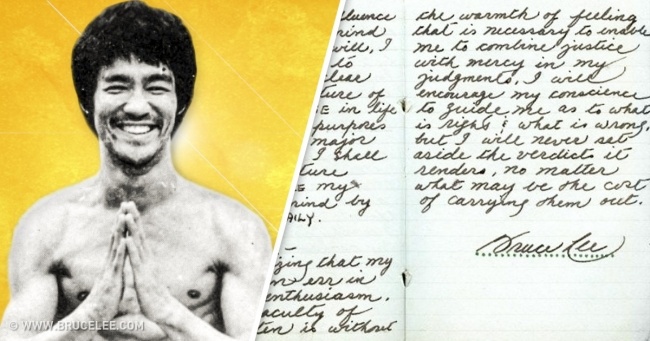 fluence
mind
will, I
to
clear
ture of
E in life
purposes
major
I shall
ture
E my
mind by
AILY.
zing that my
err in
enthusiasm.
aculty of
ten is without
the warmth of feeling
that is necessary to enable
me to combine justice
with mercy in my
judgments, I will
encourage my conscience
to guide me as to what
is right & what is wrong,
but I will never set
aside the verdicts it
renders, no matter
what may be the cost
of carrying them out.
Bruce Lee
© WWW.BRUCELEE.COM